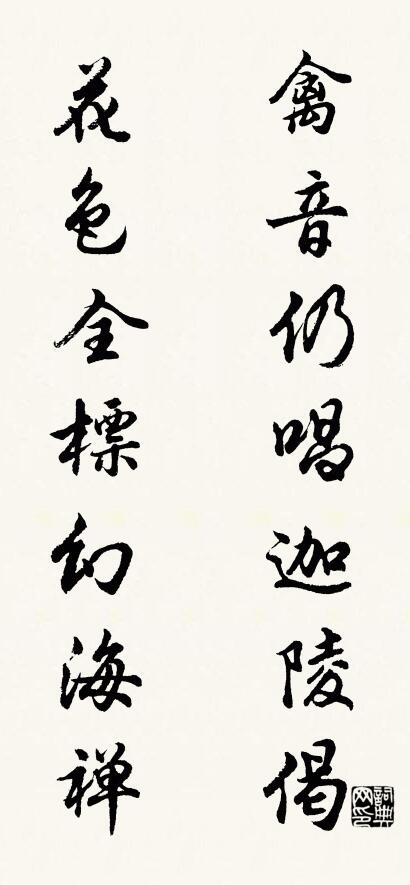 禽音仍唱迦陵偈
花色全標幻海禅
詞典网印